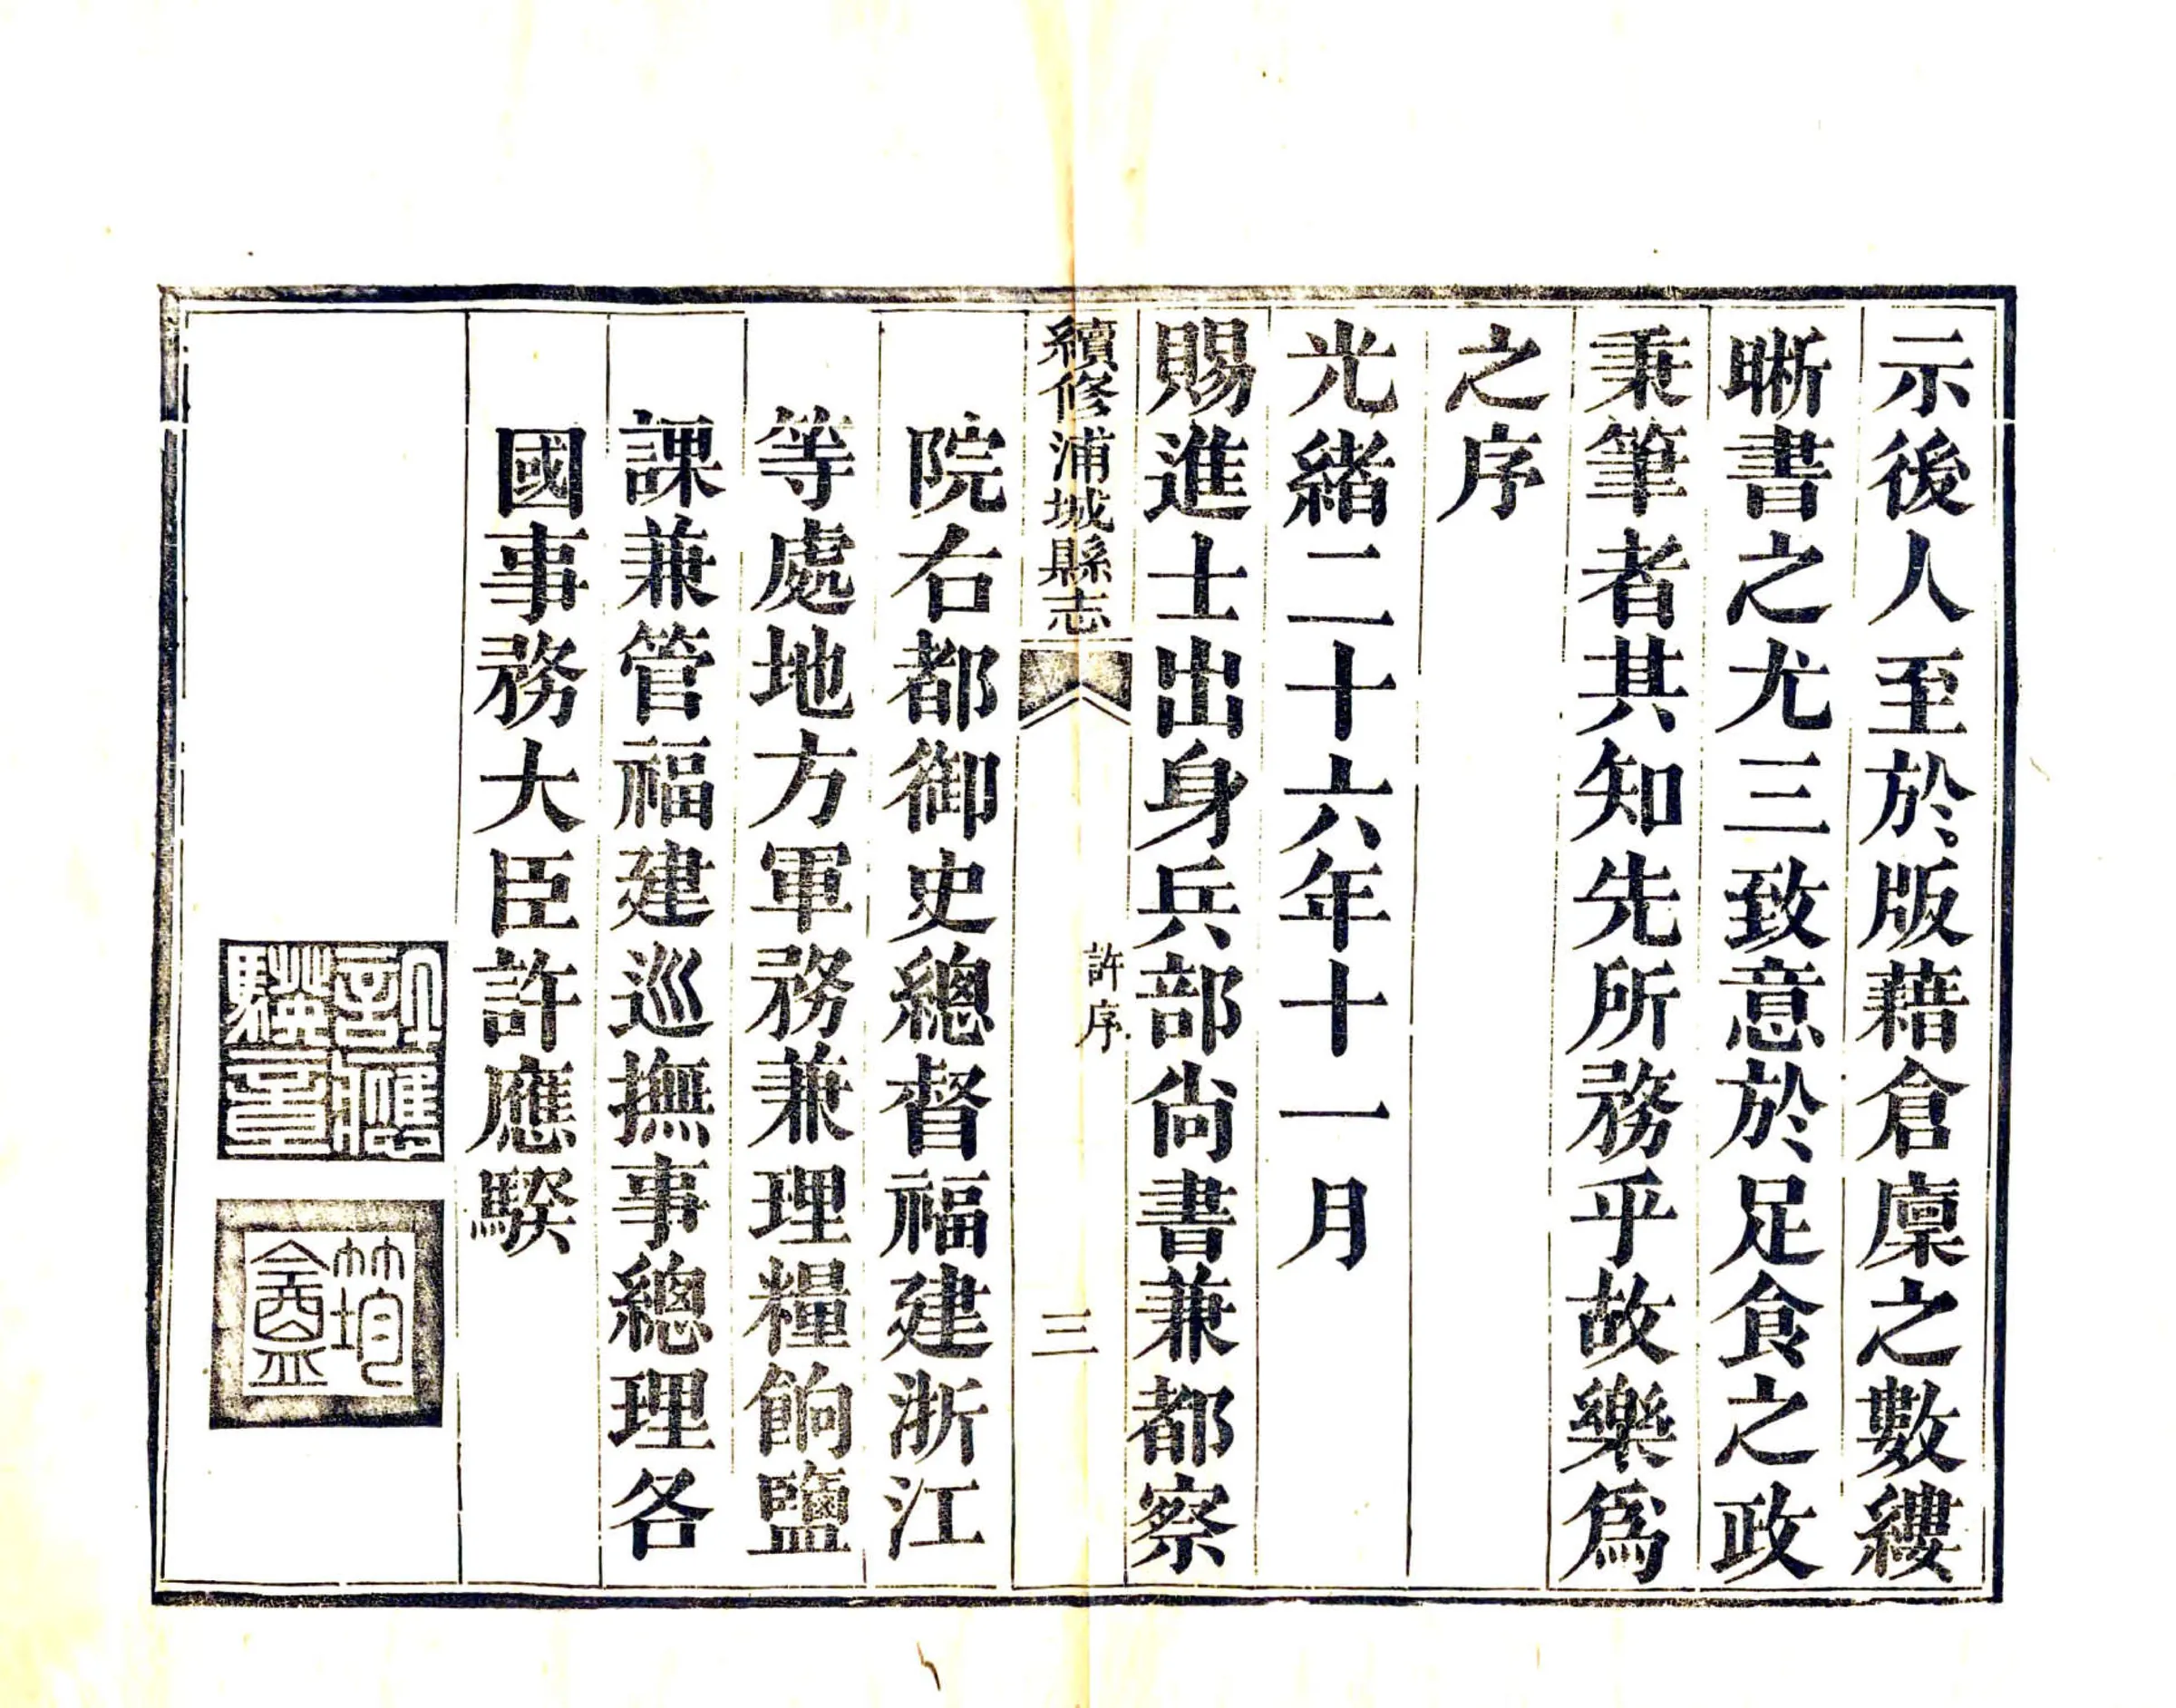 示後人至於版藉倉廩之數縷
晰書之尤三致意於足食之政
秉筆者其知先所務乎故樂爲
之序
光緒二十六年十一月
賜進士出身兵部尙書兼都察
續修浦城縣志
許序
三
院右都御史總督福建浙江
等處地方軍務兼理糧餉鹽
課兼管福建巡撫事總理各
國事務大臣許應騤
許應
騤印
筠盦